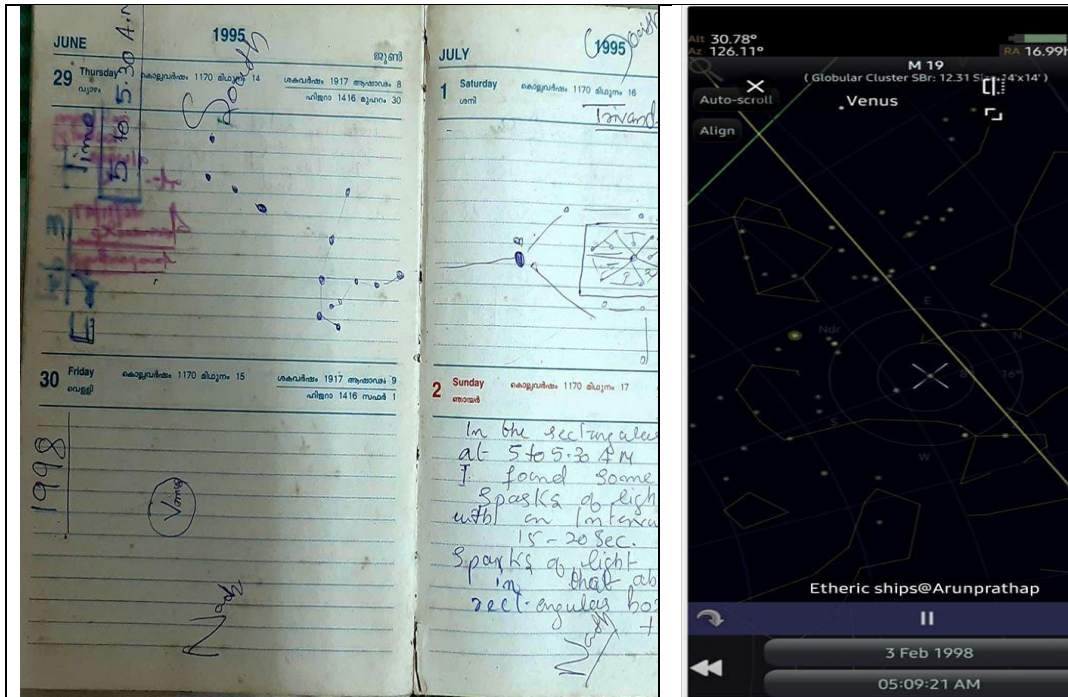 JUNE
1995
ജൂൺ
29
Thursday
വ്യാഴം
കൊല്ലവർഷം 1170 മിഥുനം 14
ശകവർഷം 1917 ആഷാഢം 8
ഹിജറാ 1416 മുഹറം 30
South
Time
5 to 5.30 A.M
30
Friday
വെള്ളി
കൊല്ലവർഷം 1170 മിഥുനം 15
ശകവർഷം 1917 ആഷാഢം 9
ഹിജറാ 1416 സഫർ 1
1998
Venus
North
JULY
1995
South
1
Saturday
ശനി
കൊല്ലവർഷം 1170 മിഥുനം 16
Trivand
2
Sunday
ഞായർ
കൊല്ലവർഷം 1170 മിഥുനം 17
In the rectangular
at 5 to 5.30 AM
I found some
Sparks of ligh
with an Interva
15-20 Sec.
Sparks of light
in that ab
rectangular bo
North
Alt 30.78°
Az 126.11°
RA 16.99h
M 19
( Globular Cluster SBr: 12.31
Auto-scroll
Venus
Align
E
Ndr
N
16°
S
W
Etheric ships@Arunprathap
3 Feb 1998
05:09:21 AM